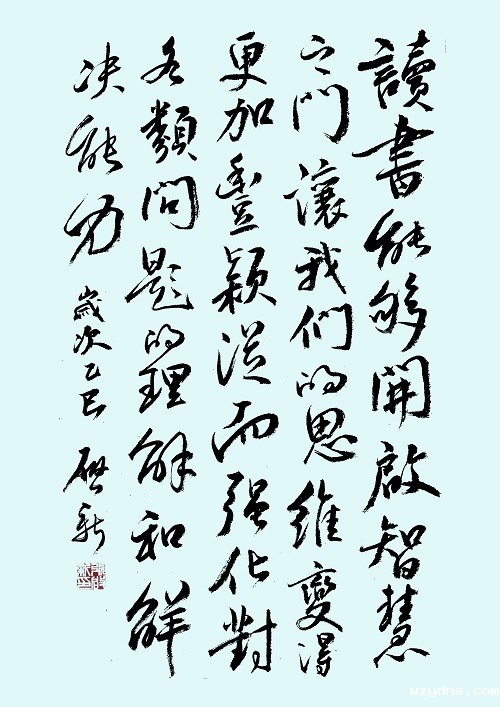 讀書能够開啟智慧
之門讓我們的思維變得
更加豐穎從而强化對
各類問題的理解和解
决能力
歲次乙巳 啟新
wzydns.com